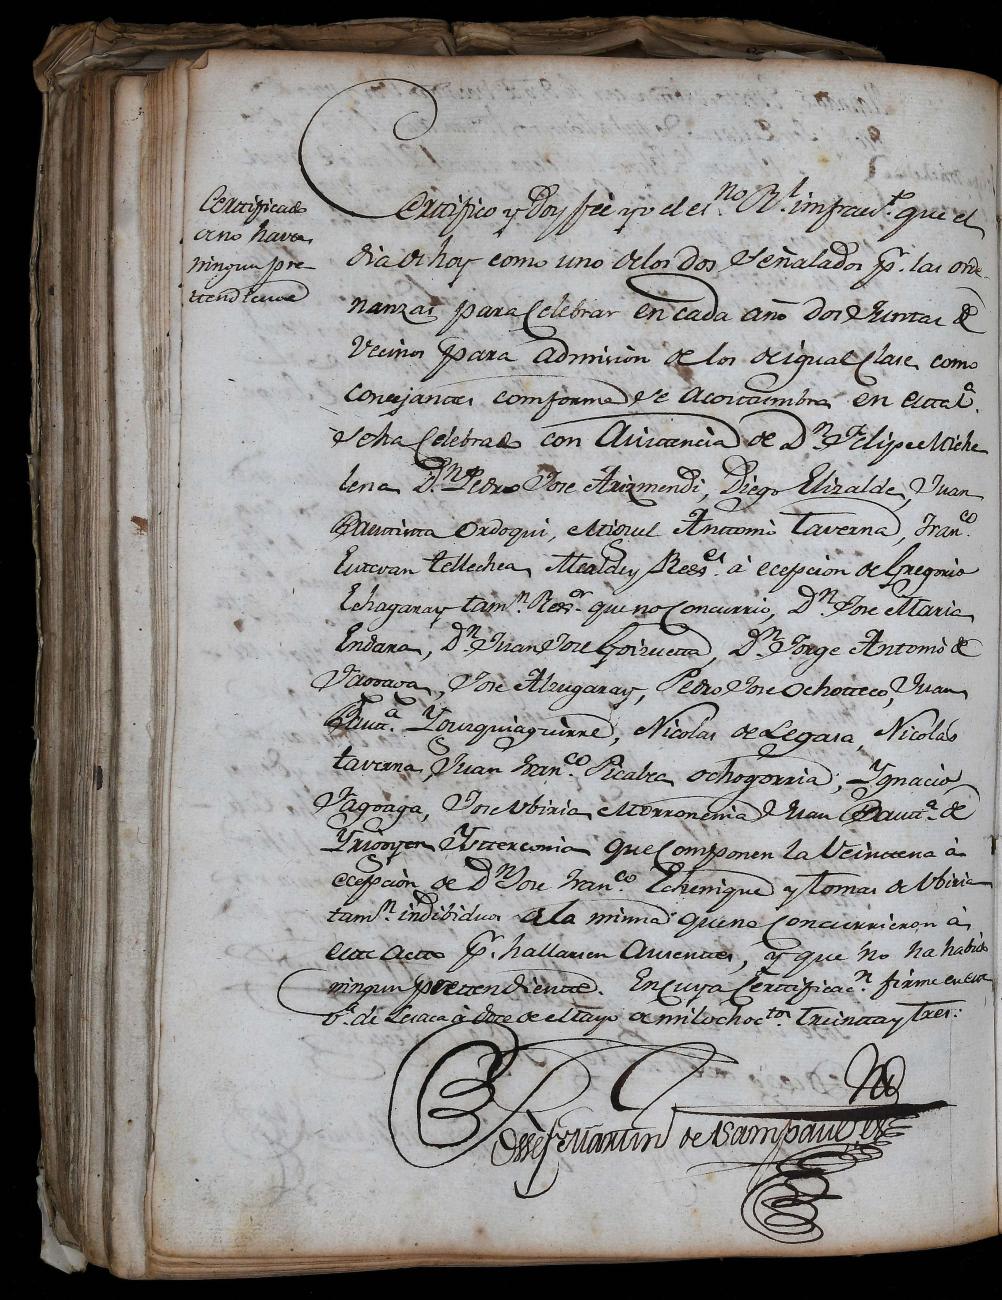 Certificado
de no haver
ningun pre
tendiente
Certifico y Doy fee yo el es.no R.l infraes.to que el
dia de hoy como uno de los dos Señalados p.r las orde-
nanzas para Celebrar en cada año dos Juntas de
Vecinos para admision de los de igual Clase como
concejantes comforme se Acostumbra en esta V.a
se ha Celebrado con Asistencia de D.n Felipe Miche
lena D.n Pedro Jose Arizmendi, Diego Elizalde, Juan
Bautista Ordoqui, Miguel Antonio Taverna, Fran.co
Estevan Tellechea, Alcalde y Reg.es á ecepcion de Gregorio
Echagaray tam.n Reg.or que no Concurrio, D.n Jose Maria
Endara, D.n Juan Jose Goizueta, D.n Jorge Antonio de
Jose Alzugaray, Pedro Jose Ochoteco, Juan
Baut.a Yturquiaguirre, Nicolas de Legasa, Nicolas
Taverna, Juan Fran.co Picabea ochogorria, Ygnacio
Fagoaga, Jose Ubiria Marronenia Juan Baut.a de
Yrigoyen Ysterconia que Componen la Veintena á
ecepcion de D.n Jose Fran.co Echenique y Tomas de Ubiria
tam.n indibiduos de la misma que no Concurrieron á
este Acto p.r hallarsen Ausentes, y que no ha habido
ningun pretendiente. En cuya Certificac.n firme en esta
V.a de Lesaca á doce de Mayo de mil ochoc.tos treinta y Tres:
Josef Martin de Sampaul